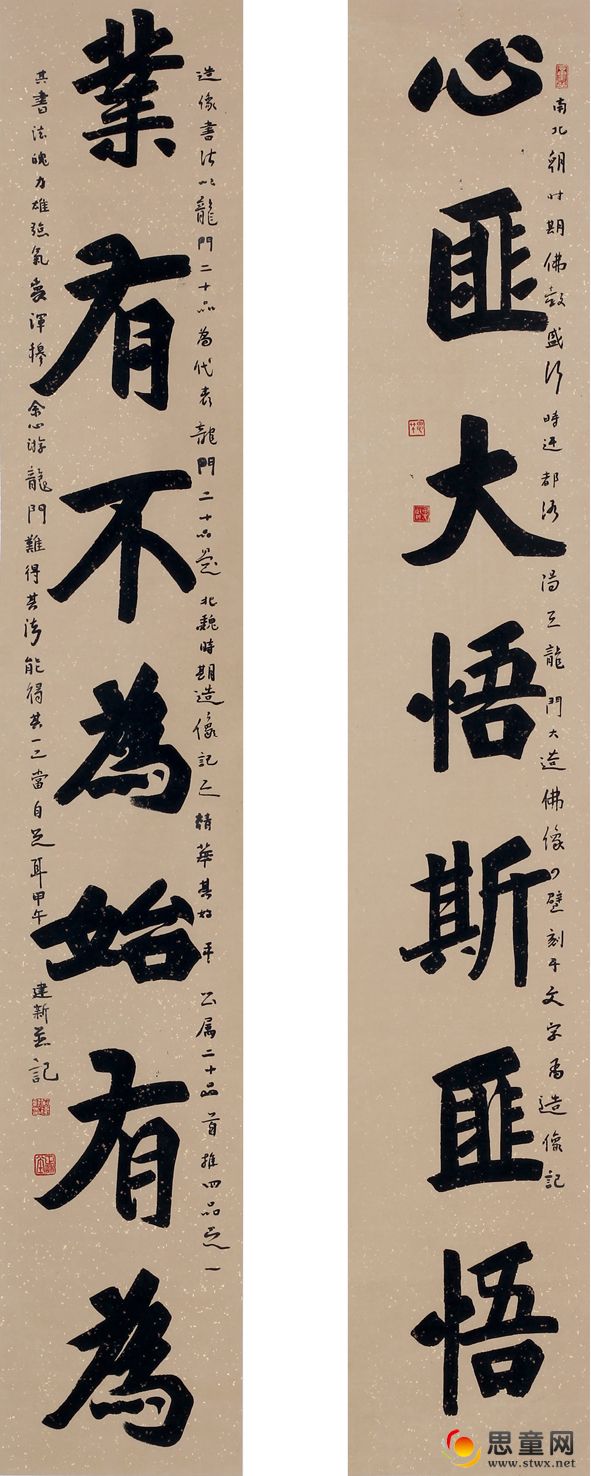 心匪大悟斯匪悟
南北朝时期佛教盛行 時迁都洛陽在龍門大造佛像 壁刻于文字為造像記
業有不為始有為
造像書法以龍門二十品為代表龍門二十品是北魏時期造像記之精華其始平公属二十品首推四品之一
其書法魄力雄强氣象渾穆余心游龍門難得其法能得其一二當自足耳甲午 建新并記
思童网
www.stwx.net